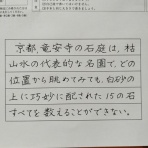 京都、竜安寺の石庭は、枯
山水の代表的な名園で、どの
位置から眺めてみても、白砂の
上に巧妙に配された15の石
すべてを数えることができない。